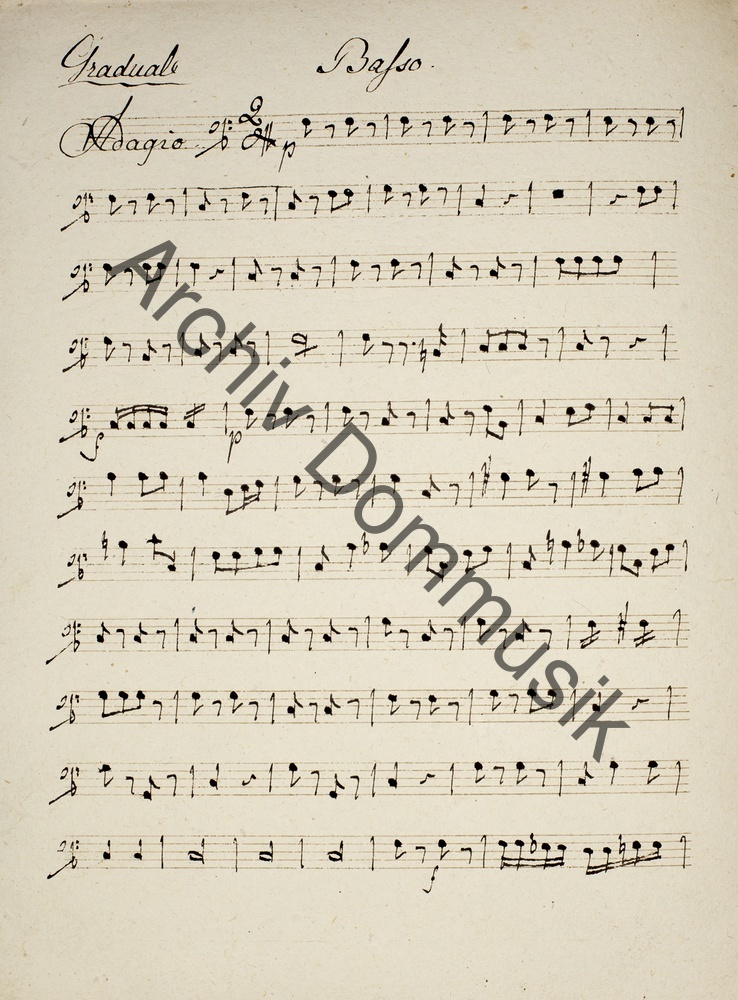 Graduale Basso.
Adagio 2 p
f p
f
Archiv Dommusik